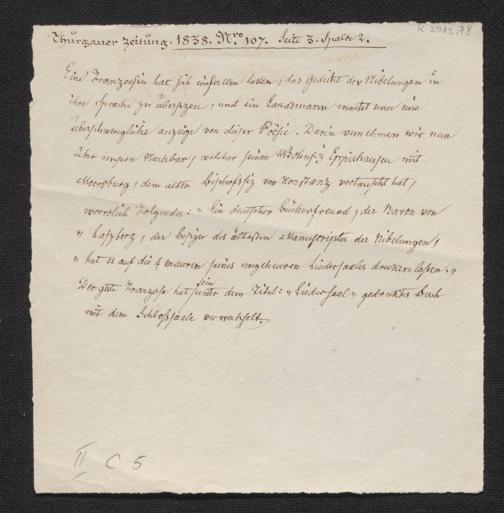 K 2912,78
Thurgauer Zeitung. 1838. Nro 107. Seite 3. Spalte 2.
Eine Französin hat sich einfallen lassen, das Gedicht der Nibelungen in
ihre Sprache zu übersezen, und ein Landsmann macht nun eine
überschwengliche anzeige von dieser Poësie. Darin vernehmen wir nun
über unsern Nachbar, welcher seinen Wohnsiz Eppishausen mit
Meersburg, dem alten bischofssiz von Konstanz vertauscht hat,
woertlich Folgendes: „ Ein deutscher bücherfreund, der Baron von
„ Laszberg, der besizer des ältesten Manuscriptes der Nibelungen,
„ hat es auf die 4 mauren seines ungeheuren Liedersaales druken lassen."
Der gute Franzose hat sein unter dem Titel: „ Liedersaal " gedruktes buch
mit dem Schloßsaale verwechselt.
II C 5